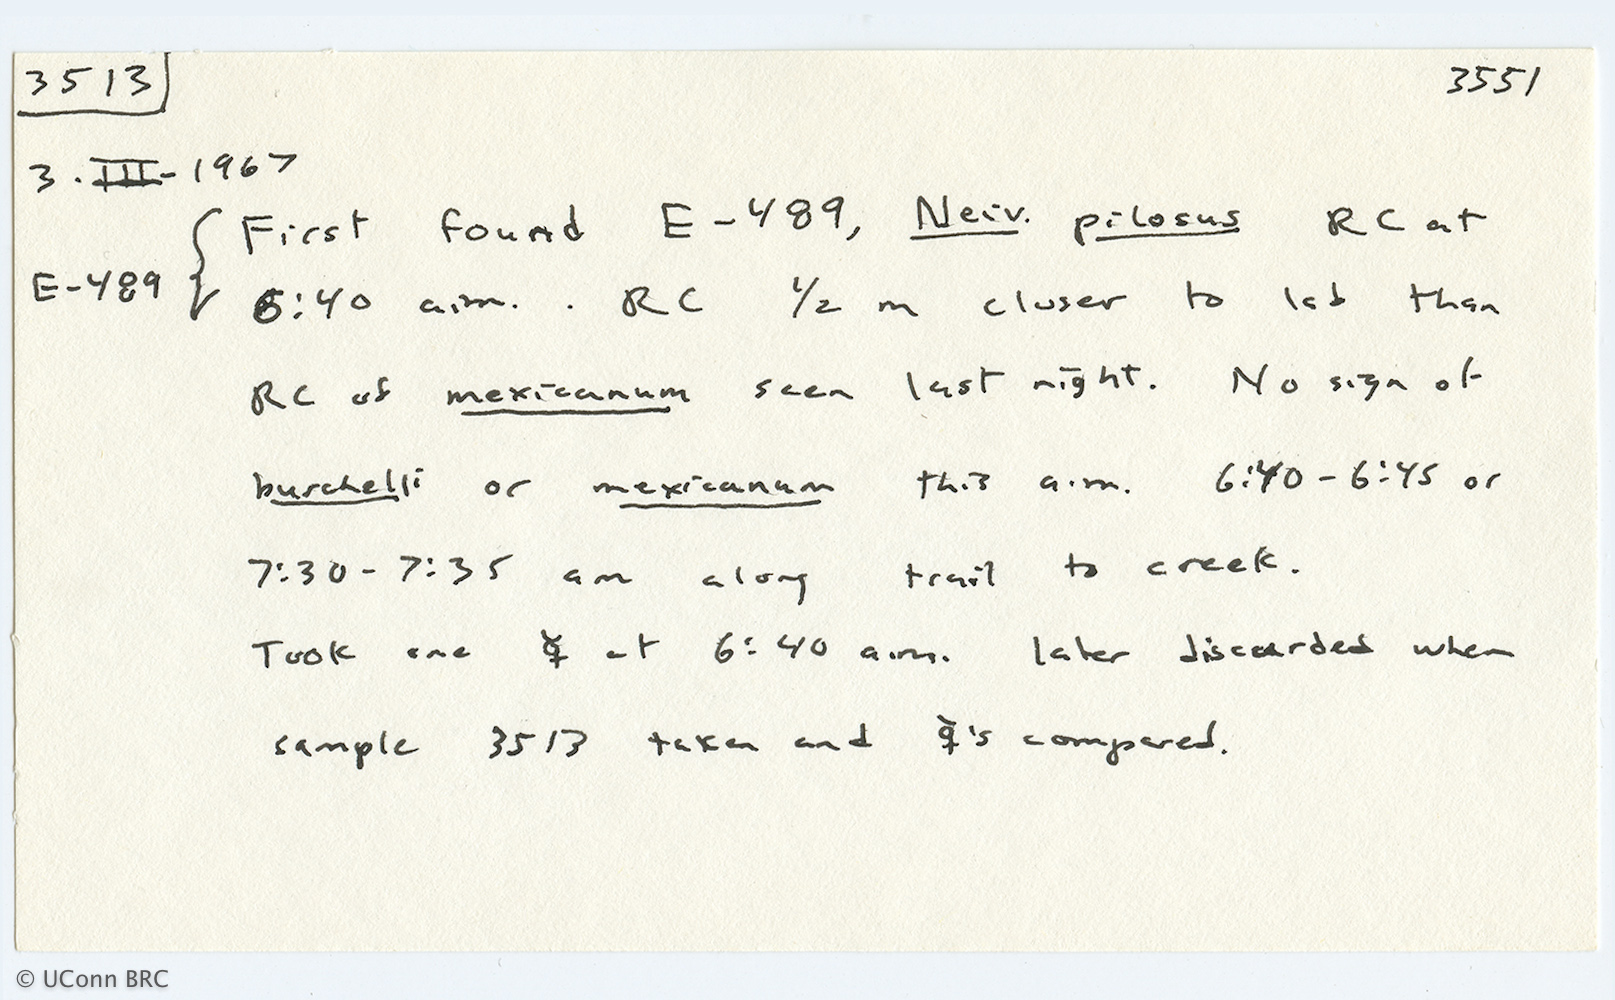 3513 3551
3.III-1967
First found E-489, Neiv. pilosus RC at
E-489 6:40 a.m.. RC 1/2 m closer to lab than
RC of mexicanum seen last night. No sign of
burchelli or mexicanum this a.m. 6:40-6:45 or
7:30-7:35 am along trail to creek.
Took one ☿ at 6:40 a.m. later discarded when
sample 3513 taken and ☿'s compared.
© UConn BRC